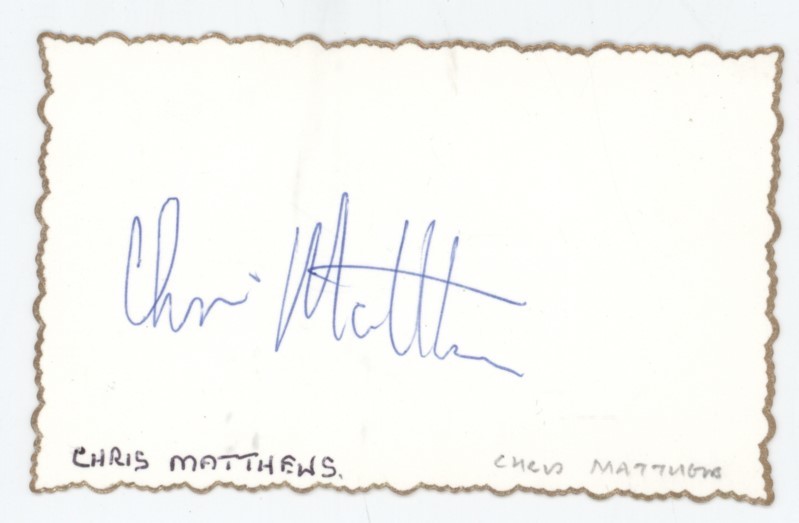 Chris Matthews
CHRIS MATTHEWS. CHRIS MATTHEWS